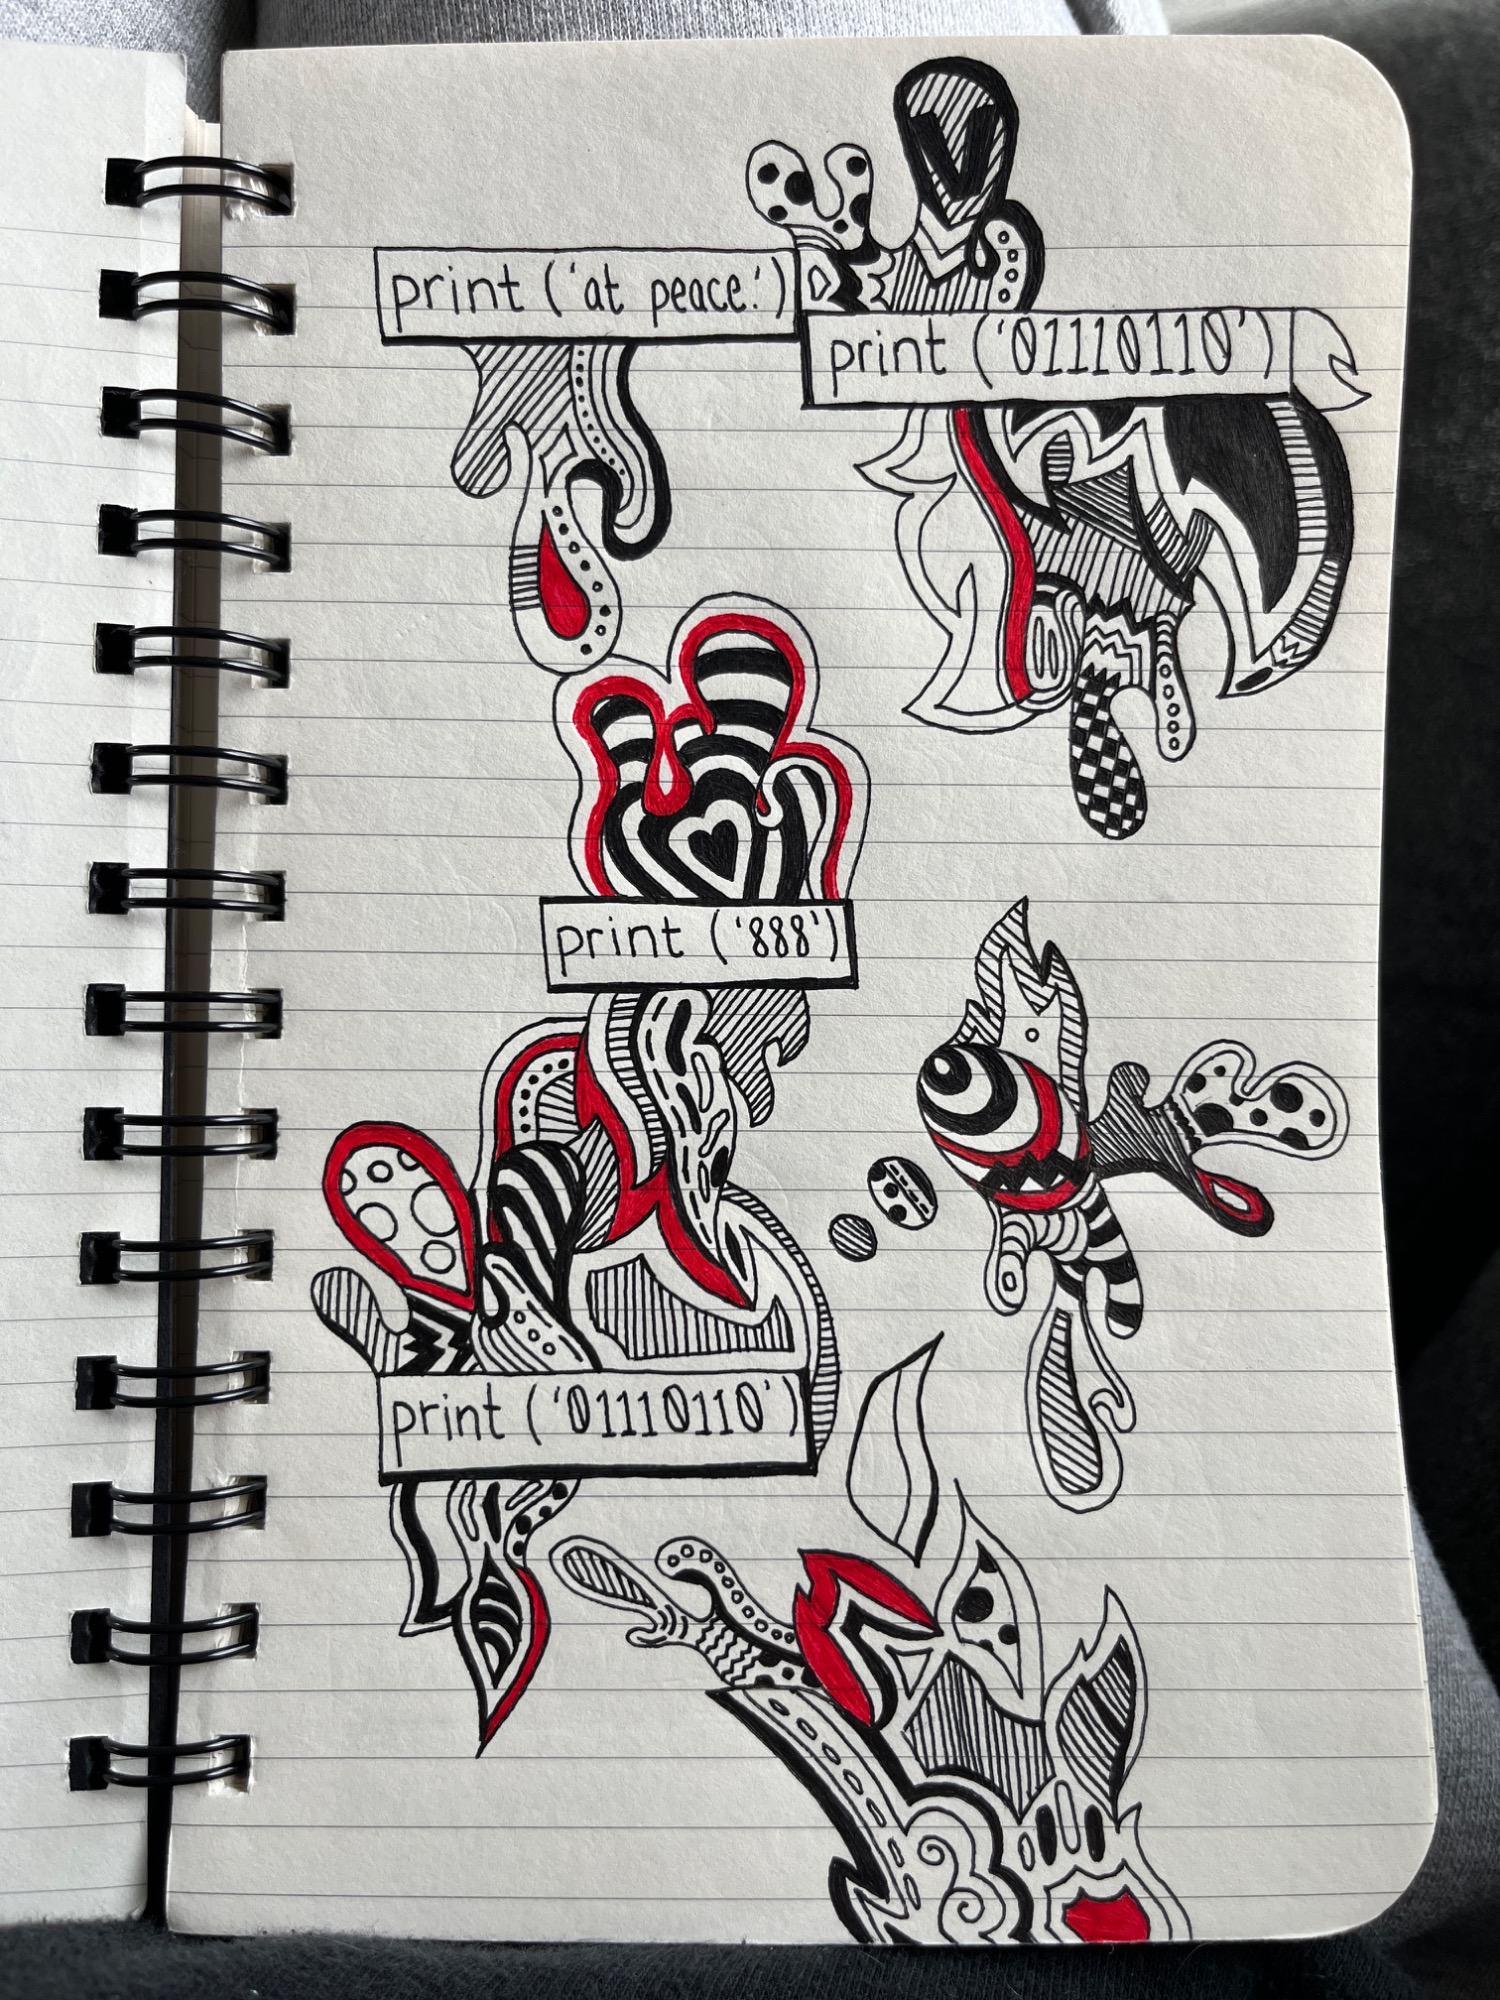 V
print ('at peace.')
print ('01110110')
print ('888')
print ('01110110')